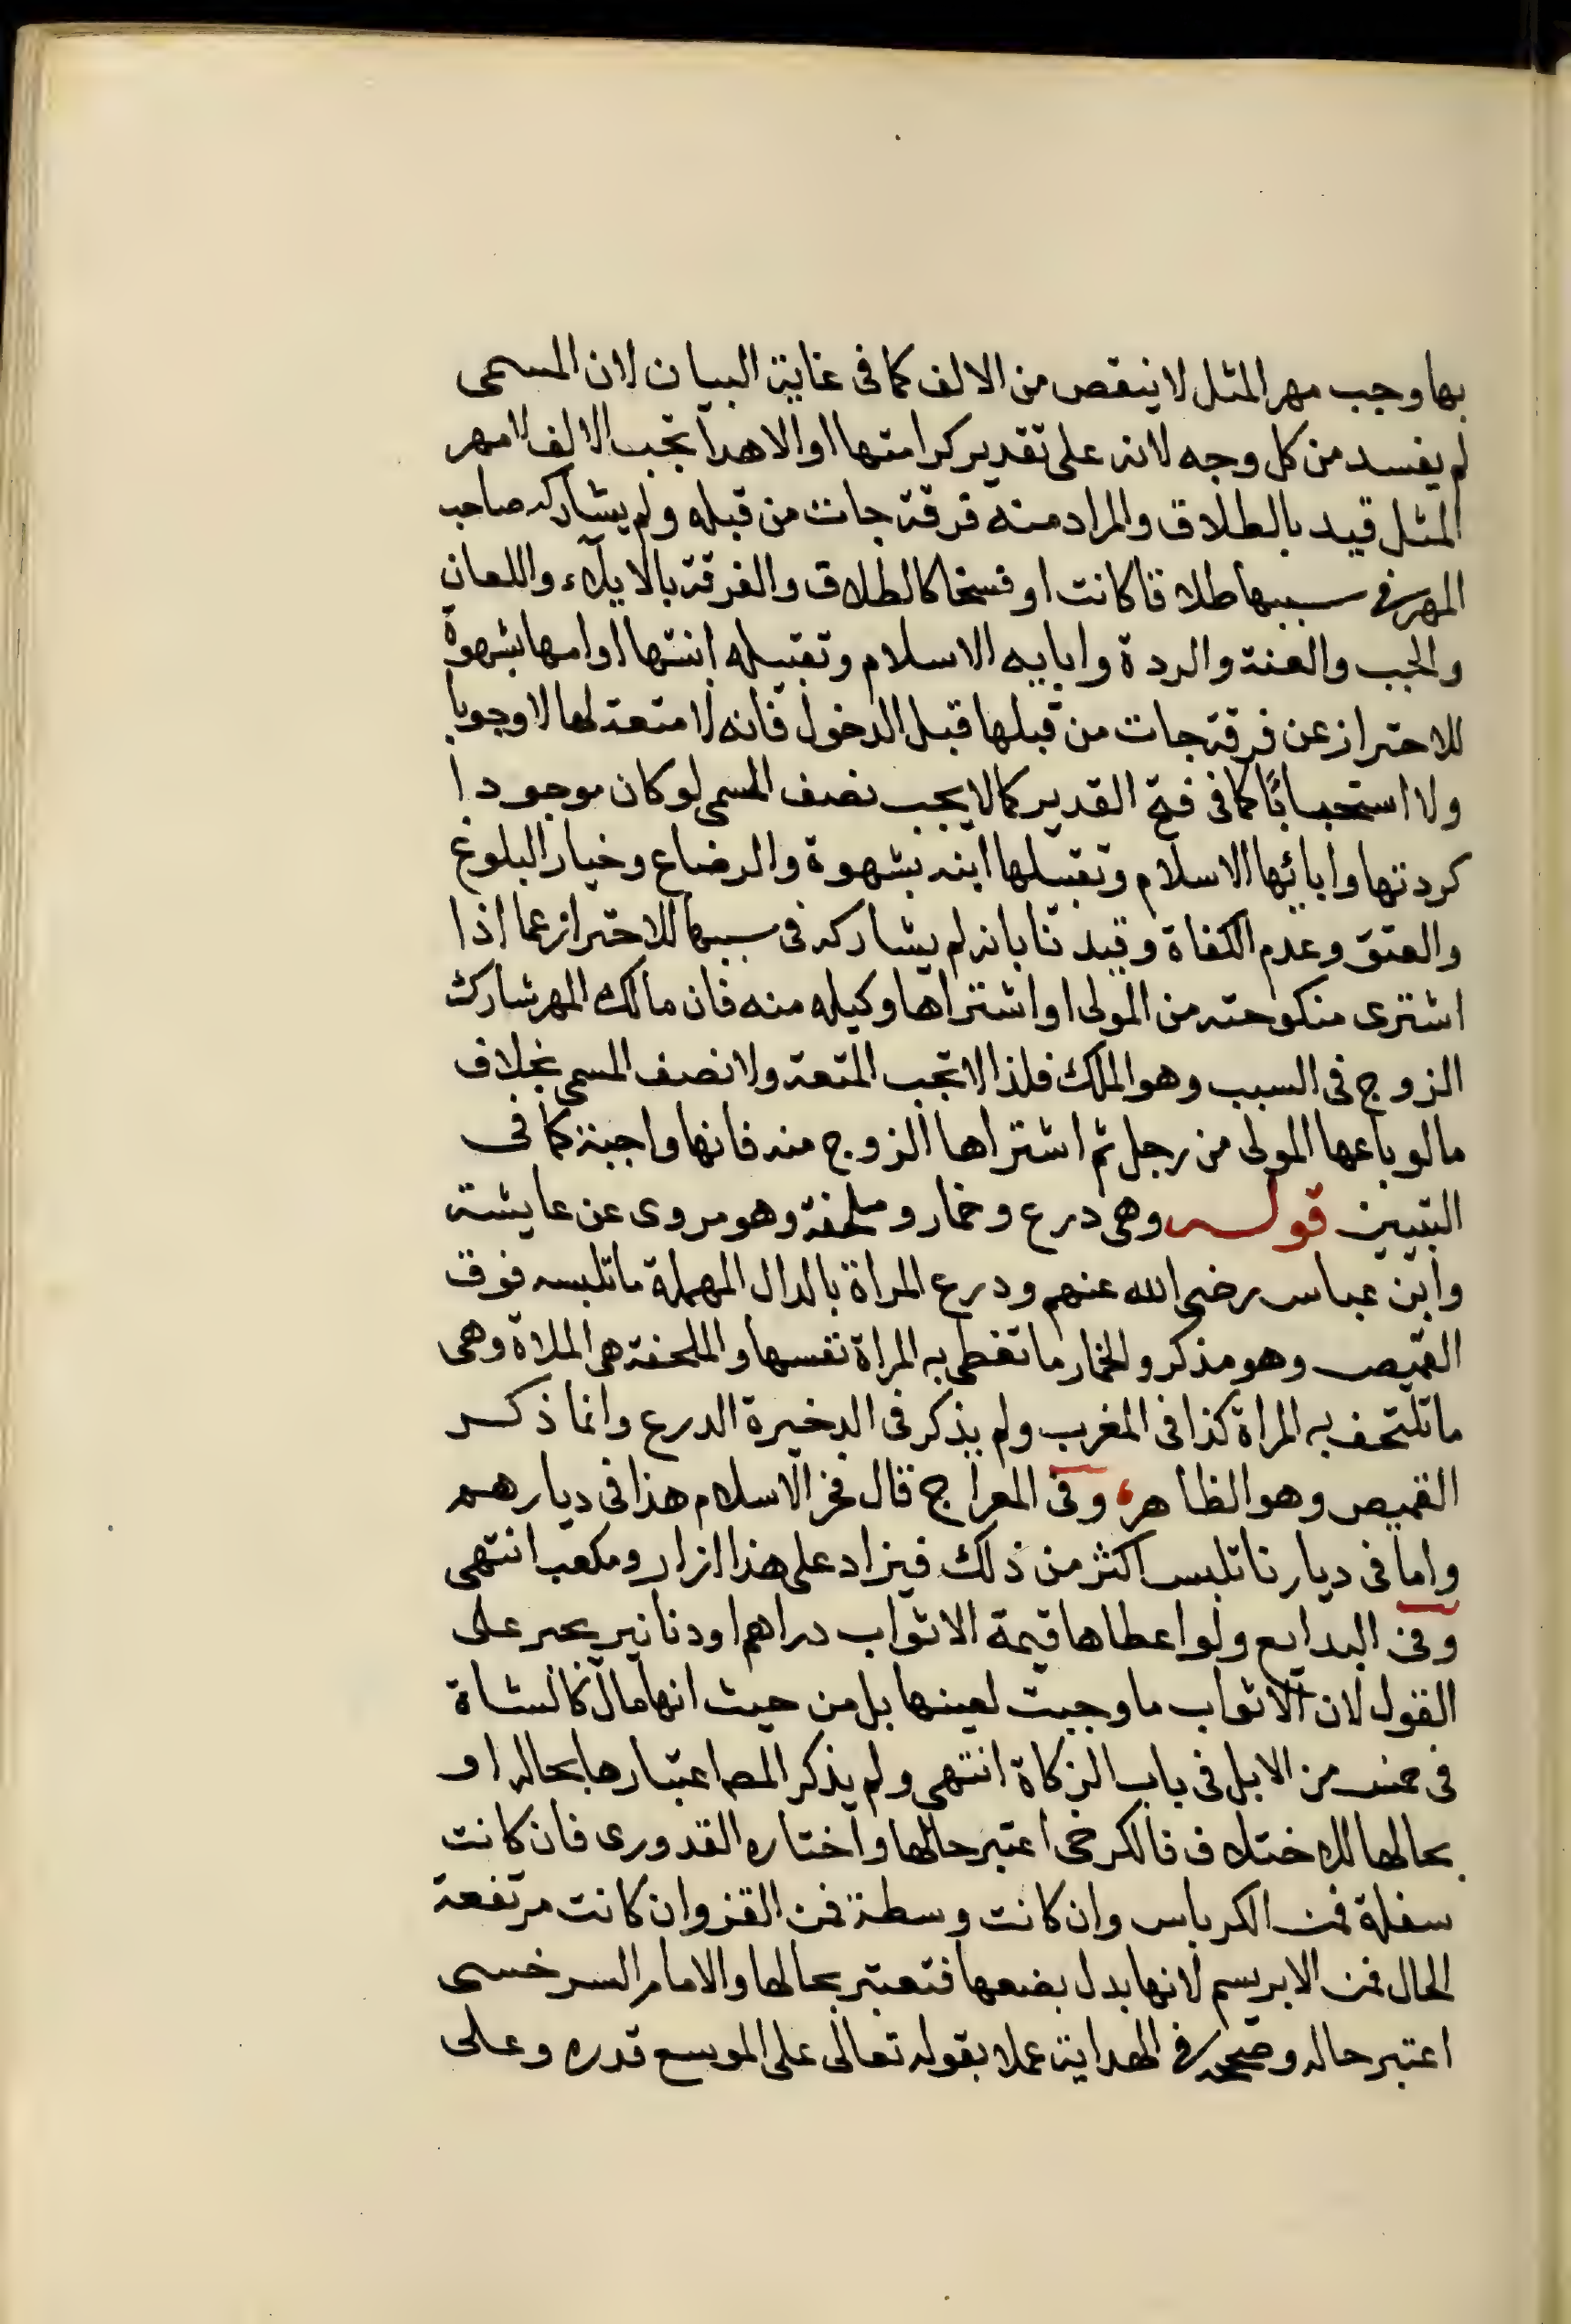 بها وجب مهر المثل لا ينقص من الالف كما فى غاية البيان لان المسمى
لم يفسد من كل وجه لانه على تقدير كرامتها او الاهدآ تجب الالف لا مهر
المثل قيد بالطلاق والمراد منه فرقة جات من قبله ولم يشاركه صاحب
المهر فى سببها طلاقا كانت او فسخا كالطلاق والفرقة بالايلآء واللعان
والجب والعنة والردة وابايه الاسلام وتقبيله ابنتها او امها بشهوة
للاحتراز عن فرقة جات من قبلها قبل الدخول فانه لا متعة لها لا وجوبا
ولا استحبابًا كما فى فتح القدير كما لا يجب نصف المسمى لو كان موجودا
كردتها وابائها الاسلام وتقبيلها ابنه بشهوة والرضاع وخيار البلوغ
والعتق وعدم الكفاة وقيدنا بانه لم يشاركه فى سببها للاحتراز عما اذا
اشترى منكوحته من المولى او اشتراها وكيله منه فان مالك المهر شارك
الزوج فى السبب وهو الملك فلذا لا تجب المتعة ولا نصف المسمى بخلاف
ما لو باعها المولى من رجل ثم اشتراها الزوج منه فانها واجبة كما فى
التبيين قوله وهى درع وخمار وملحفة وهو مروى عن عايشة
وابن عباس رضى الله عنهم ودرع المراة بالدال المهملة ما تلبسه فوق
القميص وهو مذكر والخمار ما تغطى به المراة نفسها والملحفة هى الملاة وهى
ما تلتحف به المراة كذا فى المغرب ولم يذكر فى الدخيرة الدرع وانما ذكر
القميص وهو الظاهر، وفى المعراج قال فخر الاسلام هذا فى ديارهم
واما فى ديارنا تلبس اكثر من ذلك فيزاد على هذا ازار ومكعب انتهى
وفى البدايع ولو اعطاها قيمة الاثواب دراهم او دنانير يجبر على
القول لان الاثواب ما وجبت لعينها بل من حيث انها مال كالشاة
فى خمس من الابل فى باب الزكاة انتهى ولم يذكر المص اعتبارها بحاله او
بحالها للاختلاف فالكرخى اعتبر حالها واختاره القدورى فان كانت
سفلة فمن الكرباس وان كانت وسطة فمن القز وان كانت مرتفعة
الحال فمن الابريسم لانها بدل بضعها فتعتبر بحالها والامام السرخسى
اعتبر حاله وصححه فى الهداية عملا بقوله تعالى على الموسع قدره وعلى